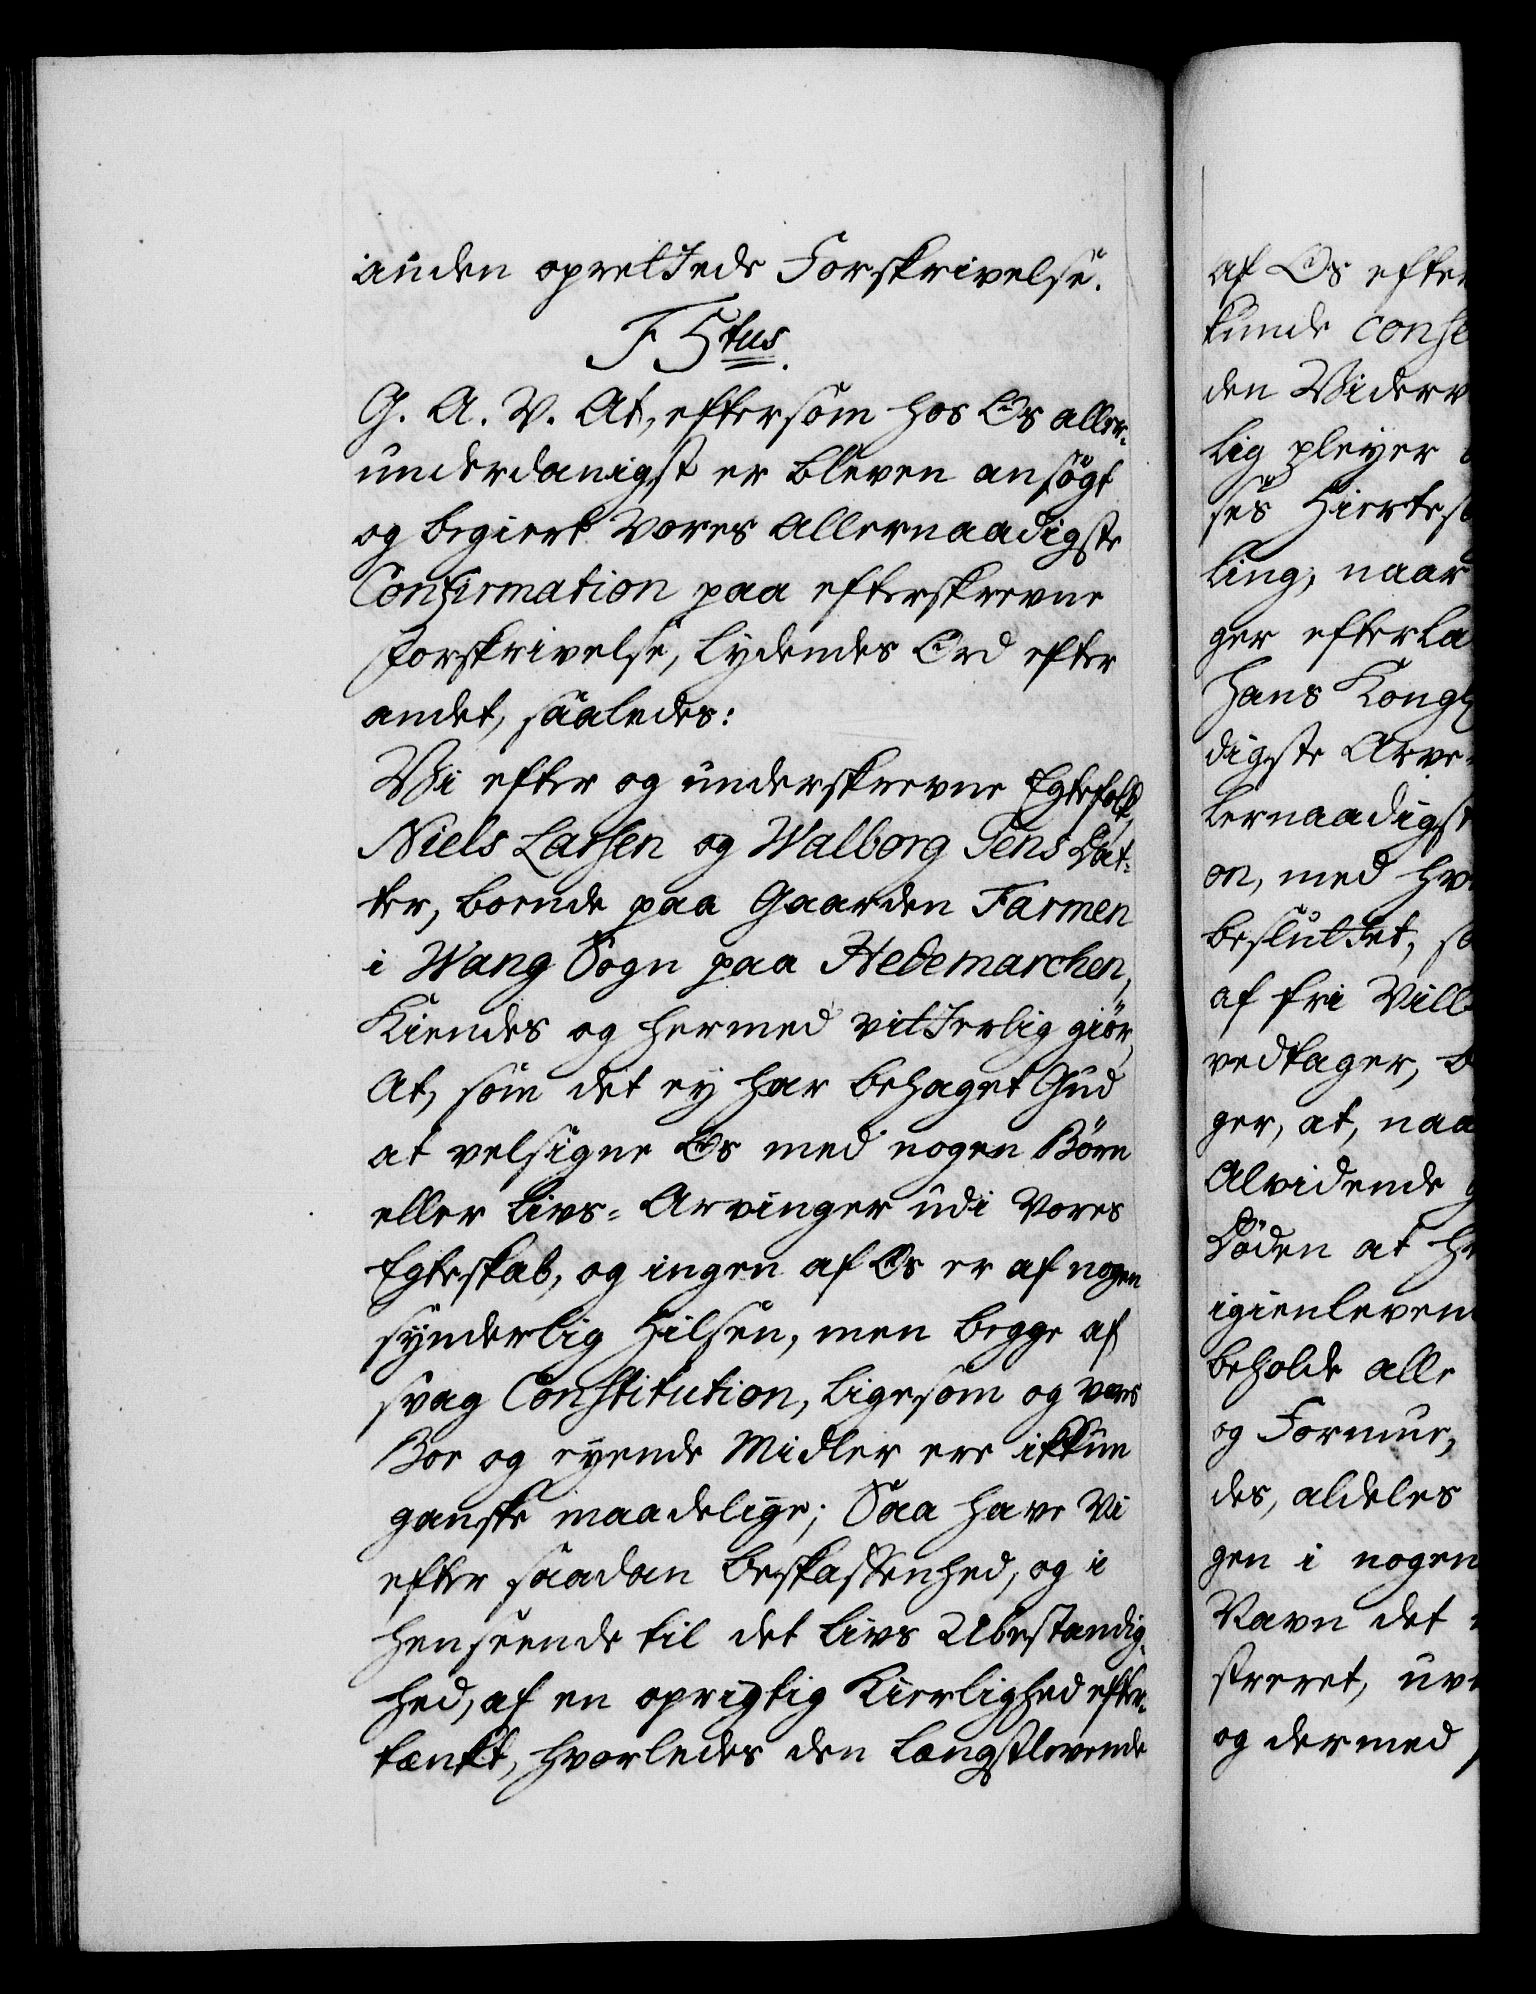 anden oprettede Forskrivelse.
F 5tus.
G. A. V. At, eftersom hos Os aller-
underdanigst er bleven ansøgt
og begiert Vores Allernaadigste
Confirmation paa efterskrevne
Forskrivelse, lydendes Ord efter
andet, saaledes:
Vi efter og underskrevne Egtefolk,
Niels Larsen og Walborg Jens Dat-
ter, boende paa Gaarden Farmen
i Wang Sogn paa Hedemarchen,
Kiendes og hermed vitterlig giør,
At, som det ey har behaget Gud
at velsigne Os med nogen Børn
eller Livs-Arvinger udi Vores
Egteskab, og ingen af Os er af nogen
synderlig Hilsen, men begge af
svag Constitution, ligesom og vores
Boe og eyende Midler ere ikkun
ganske maadelige; Saa have Vi
efter saadan Beskaffenhed, og i
henseende til det Livs Ubestandig-
hed, af en oprigtig Kierlighed efter-
tænkt, hvorledes den længstlevende
af Os efter
kunde conse
den Viderv
lig pleyer
ses Hiertes
ling, naar
ger efterla
Hans Kongl
digste Arve-
lernaadigst
on, med hv
besluttet, sa
af fri Vill
vedtager, b
ger, at, naa
Alvidende g
Døden at he
igienleven
beholde alle
og Formue,
des, aldeles
gen i nogen
Navn det
streret, uve
og dermed